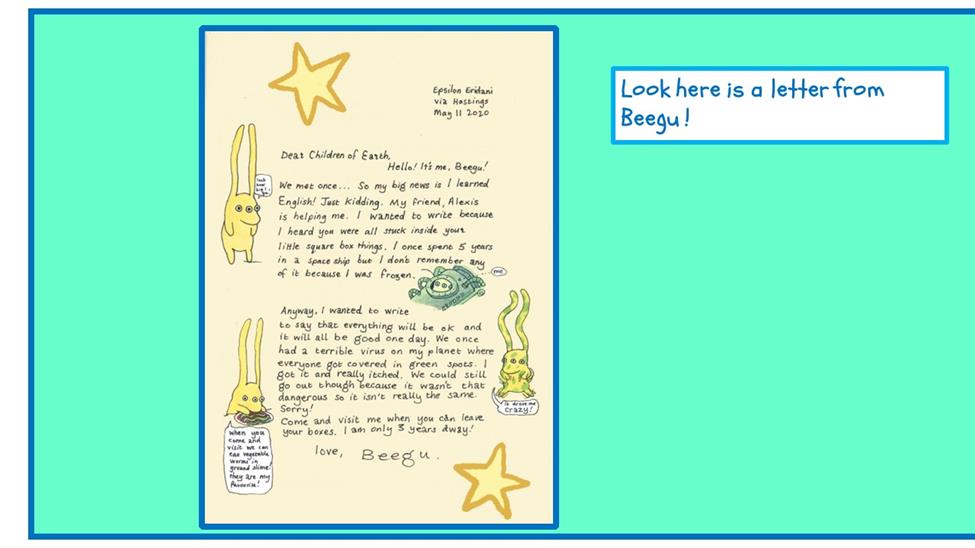 Look here is a letter from
Beegu!
Epsilon Eridani
via Hastings
May 11 2020
Dear Children of Earth,
Hello! It's me, Beegu!
We met once... So my big news is I learned
English! Just kidding. My friend, Alexis
is helping me. I wanted to write because
I heard you were all stuck inside your
little square box things. I once spent 5 years
in a space ship but I don't remember any
of it because I was frozen.
me!
look
how
big!
Anyway, I wanted to write
to say that everything will be ok and
it will all be good one day. We once
had a terrible virus on my planet where
everyone got covered in green spots. I
got it and really itched. We could still
go out though because it wasn't that
dangerous so it isn't really the same.
Sorry!
Come and visit me when you can leave
your boxes. I am only 3 years away!
love, Beegu.
it drove me
crazy!
When you
come and
visit we can
eat vegetable
worms in
ground slime.
They are my
favourite!